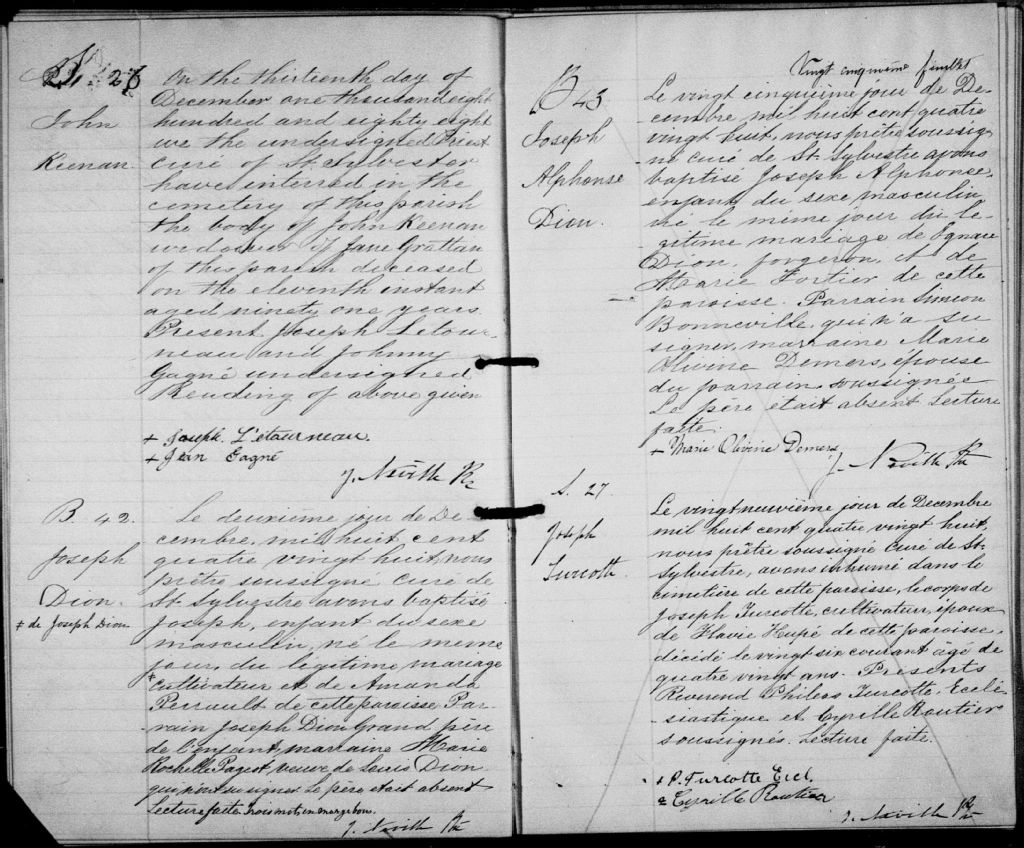 S. 26
John
Keenan
On the thirteenth day of
December one thousand eight
hundred and eighty eight
we the undersigned Priest
curé of St. Sylvester
have interred in the
cemetery of this parish
the body of John Keenan
widower of Jane Grattan
of this parish deceased
on the eleventh instant
aged ninety one years.
Present Joseph Letour-
neau and Johnny
Gagné undersigned
Reading of above given
+ Joseph L'étourneau.
+ Jean Gagné
J. Neville Ptr
B. 42.
Joseph
Dion.
* de Joseph Dion
Le deuxième jour de Dé-
cembre, mil huit cent
quatre vingt huit, nous
prêtre soussigné curé de
St. Sylvestre avons baptisé
Joseph, enfant du sexe
masculin, né le même
jour, du légitime mariage
* cultivateur et de Amanda
Perrault de cette paroisse. Par-
rain Joseph Dion Grand père
de l'enfant, marraine Marie
Rochelle Pageot veuve de Louis Dion
qui n'ont su signer. Le père était absent
Lecture faite. Trois mots en marge bon.
J. Neville Ptr
Vingt cinquième feuillet
B 43
Joseph
Alphonse
Dion.
Le vingt cinquième jour de Dé-
cembre mil huit cent quatre
vingt huit, nous prêtre soussig-
né curé de St. Sylvestre avons
baptisé Joseph Alphonse,
enfant du sexe masculin
né le même jour du lé-
gitime mariage de Ignace
Dion, forgeron, et de
Marie Fortier de cette
paroisse. Parrain Simeon
Bonneville, qui n'a su
signer, marraine Marie
Olivine Demers, épouse
du parrain soussignée
Le père était absent Lecture
faite.
+ Marie Olivine Demers
J. Neville Ptr
S. 27
Joseph
Turcotte.
Le vingt neuvième jour de Decembre
mil huit cent quatre vingt huit,
nous prêtre soussigné curé de St.
Sylvestre, avons inhumé dans le
cimetière de cette paroisse, le corps de
Joseph Turcotte, cultivateur, époux
de Flavie Hupé de cette paroisse,
décédé le vingt six courant âgé de
quatre vingt ans. Présents
Révérend Philéas Turcotte Eccle-
siastique et Cyrille Routier
soussignés. Lecture faite.
+ P. Turcotte Eccl.
+ Cyrille Routier
J. Neville Ptr